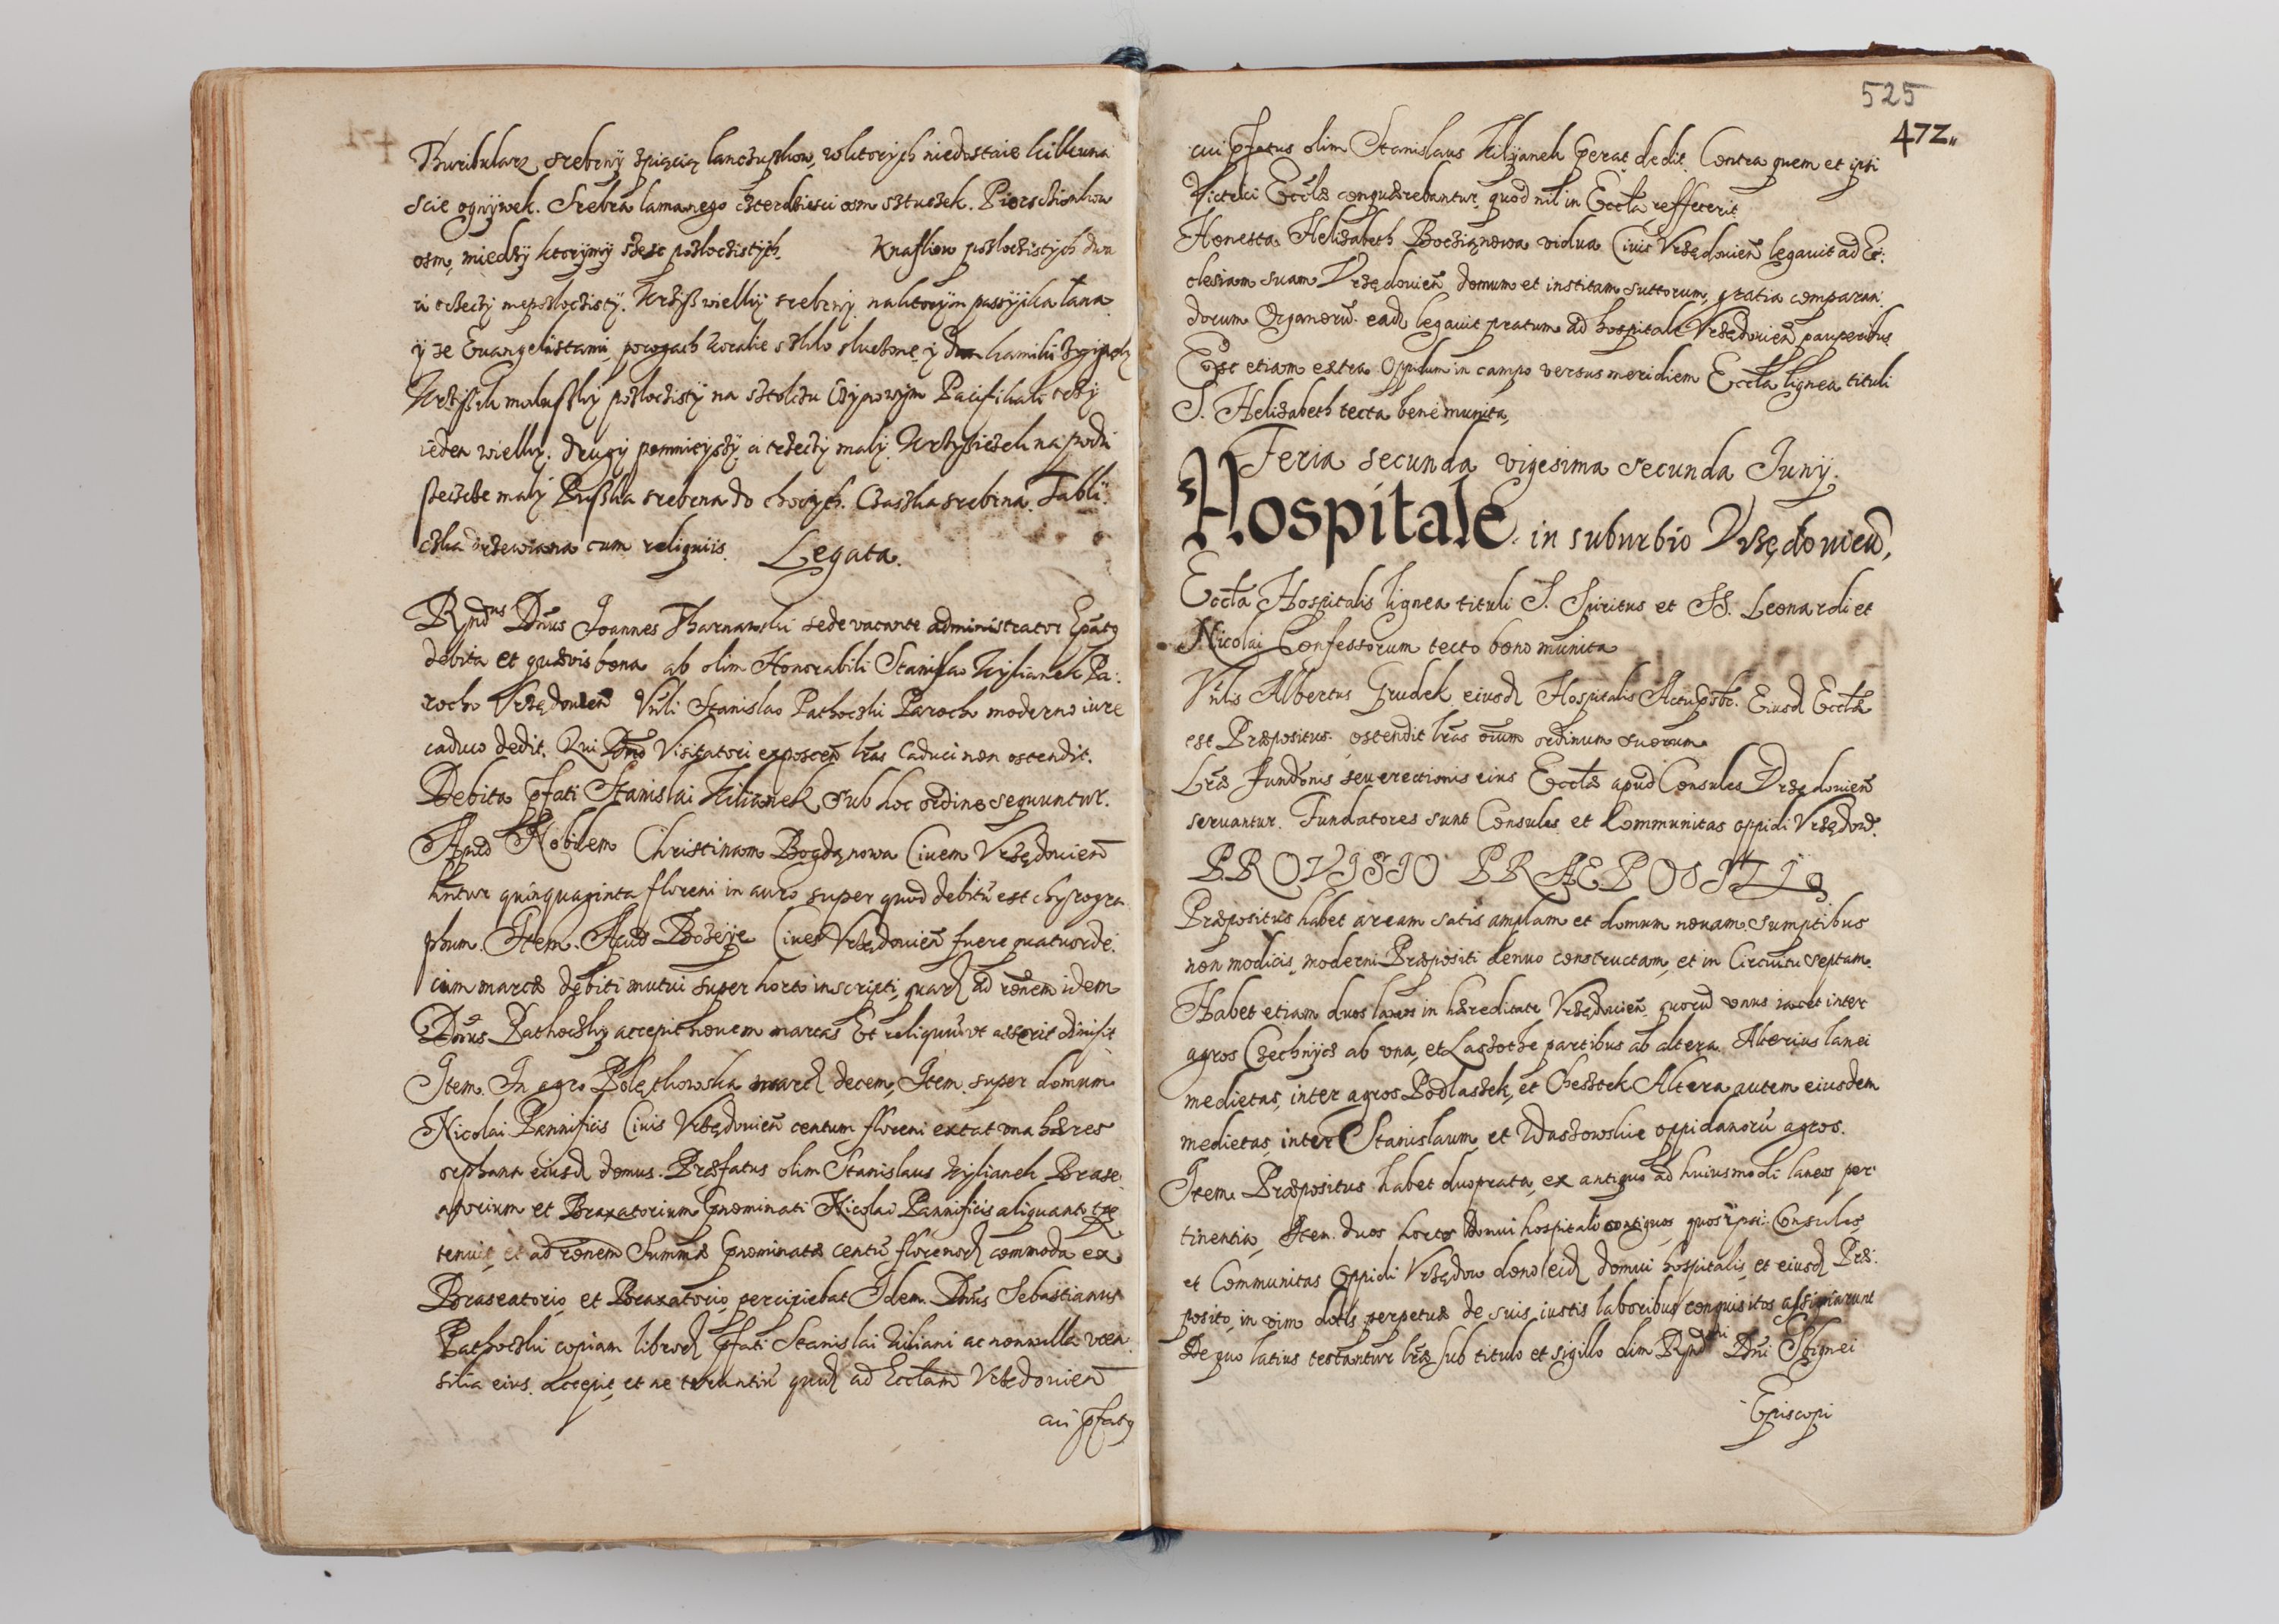 Thuribularz srebrny zpiącią lanczuszkow, wktorych niedostaie kilkuna
scie ognywek. Srebra lamanego czterdziesci osm sztuczek. Pierschionkow
osm, miedzy ktorymy szesc pozlocistych. Knaflow pozlocistych dwa
a trzeci niepozlocisty. Krzysz wielky srebrny na ktorym passyjka lana
y ze Euangelistami, porogach koralie szklo sluczone, y dwa kamiki
Krzyszik maluszky pozlocisty na stolcu Pacifikali trzy
ieden wielky. drugy pomnieyszy a trzeci maly. Krzysiczek na
maly Puszka srebrna do chorych. Czaszka srebrna. Tabli
czka drzewiana cum reliquiis. Legata.
Rndus Dnus Joannes Tharnawski sede vacante administrator Epatus
debita et quævis bona ab olim Honorabili Stanislao Kylianek Pa:
rocho Vrzędovien Vnli Stanislao Pathoczki Parocho moderno iure
caduco dedit. Qui Dno Visitatori exposcen lras Caduci non ostendit.
Debita pfati Stanislai Kilianek sub hoc ordine sequuntur.
Apud Nobilem Christinam Bogdanowa Ciuem Vrzędouien
hntur quinquaginta floreni in auro super quod debitu est chyrogra
phum. Item. Apud Bozeÿe Ciues Vrzędouien fuere quatuorde:
cim marcæ debiti mutui super horto inscripti, quarz ad ronem idem
Dnus Pathoczky accepit nouem marcas Et reliquu vt asserit dimisit
Item. In agro marcz decem, Item. super domum
Nicolai Pannificis Ciuis Vrzędouien centum floreni extat vna hæres
orphana eiusd domus. Præfatus olim Stanislaus Kylianek Brase
atorium et Braxatorium pnominati Nicolai Pannificis aliquanto tpe
tenuit, et ad ronem Summæ pnominatæ centu florenorz commoda ex
Braseatorio, et Braxatorio percipiebat Idem. Dnus Sebastianus
Pathoczki copiam librorz pfati Stanislai Kiliani ac nonnulla vten
silia eius accepit, et ad Ecctam Vrzędouien
cui pfatus
525
472
cui pfatus olim Stanislaus Kilÿanek dedit. Contra quem et ipsi
Vitrici Ecctæ conquærebantur, quod nil in Eccta reffecerit.
Honesta Helizabeth Bochianowa vidua Ciuis Vrzędouien legauit ad Ec:
clesiam suam Vrzędouien domum et institam suttorum, gratia comparan
dorum Organoru. ead legauit pratum ad hospitale Vrzędouien pauperibus
Est etiam extra Oppidum in campo versus meridiem Eccta lignea tituli
S. Helizabeth tecta bene munita,
Feria secunda vigesima secunda Junÿ.
Hospitale in suburbio Vrzędouien,
Eccta Hospitalis lignea tituli S. Spiritus et SS. Leonardi et
Nicolai Confessorum tecto bono munita
Vnlis Albertus Grudek eiusd Hospitalis Eiusd Ecctæ
est Præpositus. ostendit lras oium ordinum suorum
Lræ fundonis seu erectionis eius Ecctæ apud Consules Vrzędouien
seruantur. Fundatores sunt Consules et Communitas oppidi Vrzędow.
PROVISIO PRAEPOSITI
Præpositus habet aream satis amplam et domum nouam sumptibus
non modicis, moderni Præpositi denuo constructam, et in Circuitu septam.
Habet etiam duos laneos in hæreditate Vrzędouien, quoru vnus iacet inter
agros Czechnycz ab vna, et Laszothe partibus ab altera. Alterius lanei
medietas, inter agros Podlaszek, et Chesztek Altera autem eiusdem
medietas, inter Stanislaum et Waszowskie oppidanoru agros.
Item. Præpositus habet duo prata, ex antiquo ad huiusmodi laneos per
tinentia, Item. duos hortos domui hospitali contiguos, quos ipsi Consules,
et Communitas oppidi Vrzędow dono eid domui hospitalis, et eiusd Præ:
posito, in vim dotis perpetuæ de suis iustis laboribus conquisitos assignarunt
De quo latius testantur lræ sub titulo et sigillo olim Rndi Dni Sbignei
Episcopi